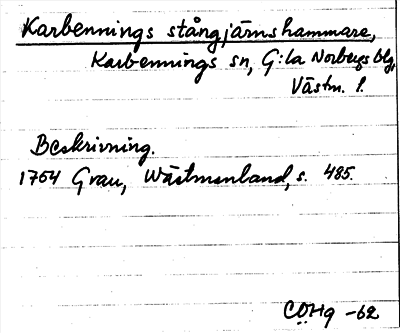 Karbennings stångjärnshammare,
Karbennings sn, G:la Norbergs blg,
Västm. l.
Beskrivning.
1754 Grau, Wästmanland, s. 485.
COHg -62